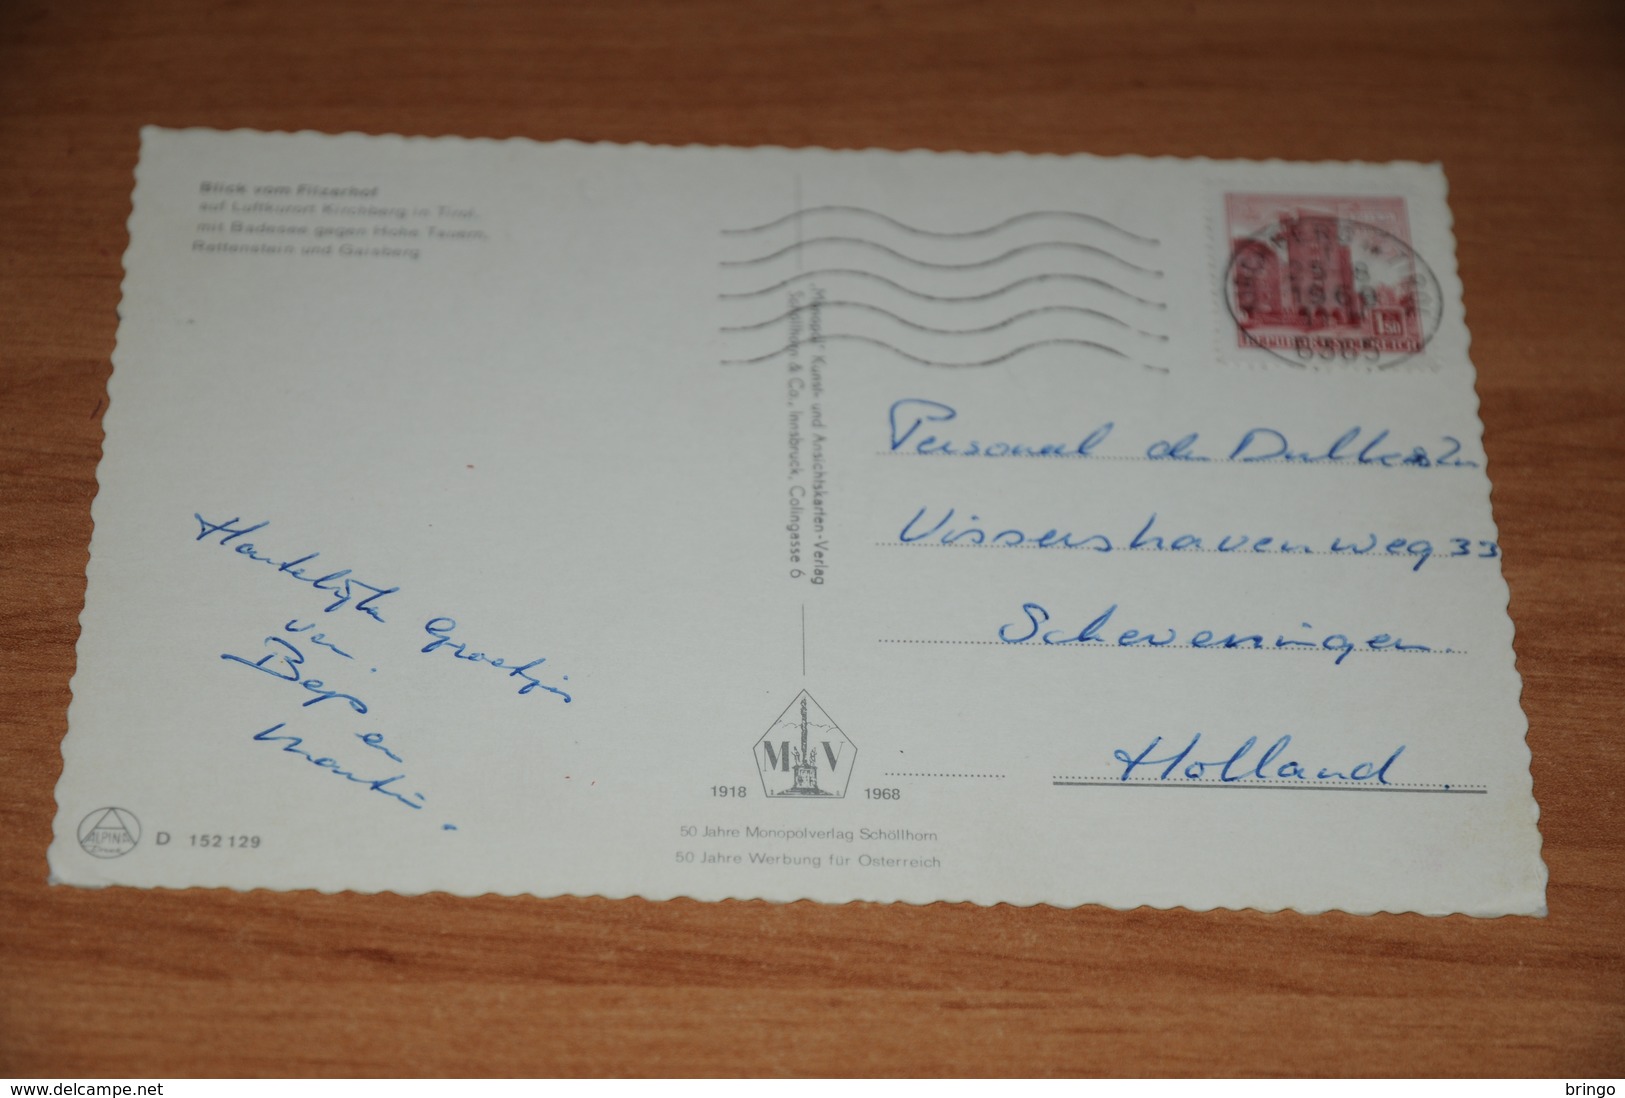 Blick vom Filzerhof
auf Luftkurort Kirchberg in Tirol,
mit Badesee gegen Hohe Tauern,
Rettenstein und Gaisberg
"Monopol" Kunst- und Ansichtskarten-Verlag
Schöllhorn & Co., Innsbruck, Colingasse 6
1.50
REPUBLIK ÖSTERREICH
KIRCHBERG IN TIROL
6365
Personeel de
Vissershavenweg 33
Scheveningen.
Holland.
Hartelijke Groetjes
van
Bep en
Martin.
M V
1918 1968
50 Jahre Monopolverlag Schöllhorn
50 Jahre Werbung für Österreich
ALPINA
Druck
D 152129
www.delcampe.net
bringo